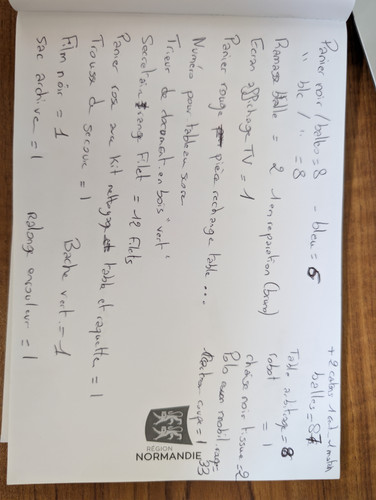 Panier noir / balles = 8 - bleu = 6
" blc / " = 8
Ramasse balle = 2 1 en réparation (bureau)
Ecran affichage TV = 1
Panier rouge pièce rechange table ...
Numéro pour tableau score
Trieur de document en bois "vert"
Secrétaire range Filet = 12 filets
Panier rose avec kit nettoyage table et raquette = 1
Trousse de secours = 1
Film noir = 1 Bache vert = 1
sac archive = 1 Ralonge enrouleur = 1
+ 2 cartons
balles =
Table arbitrage = 8
robot = 1
chaise noir tissue = 2
Polo
rouge = 1
33
RÉGION
NORMANDIE